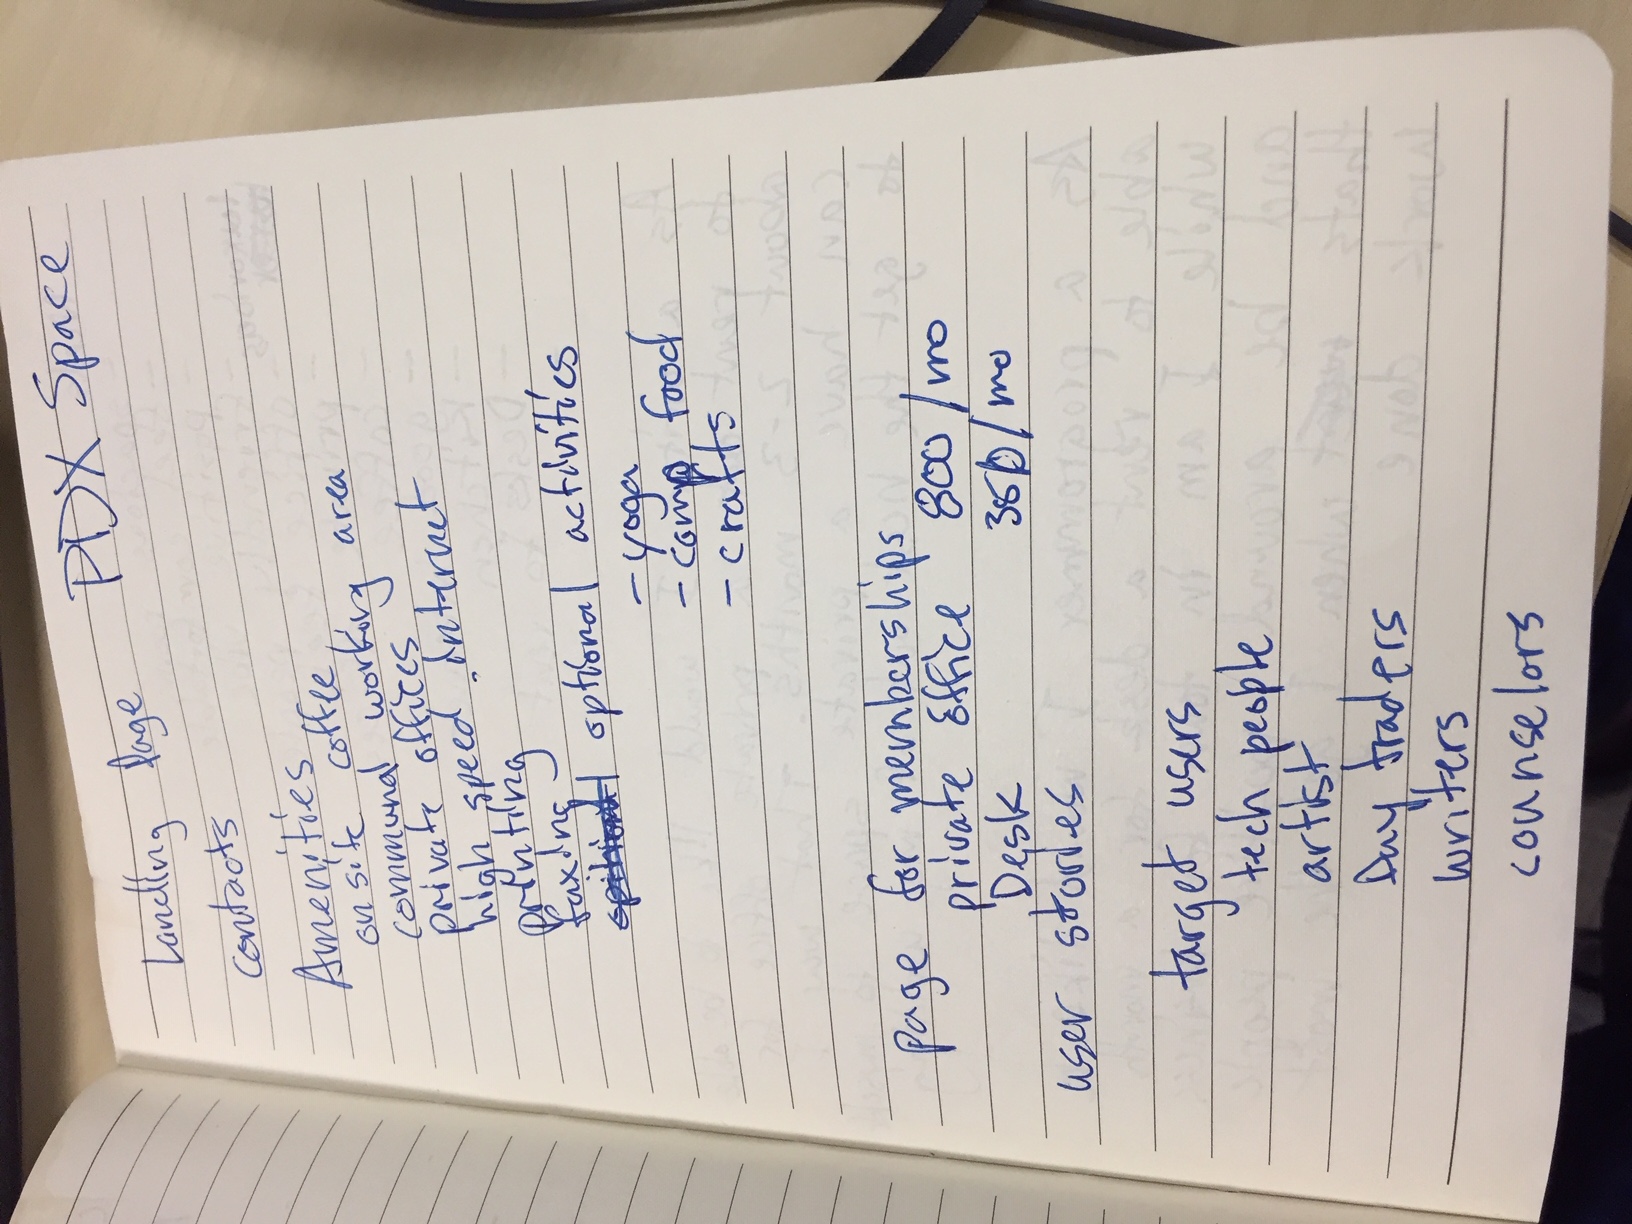 PDX Space
Landing Page
contacts
Amenities
on site coffee
communal working area
private offices
high speed internet
printing
faxing
optional activities
- yoga
- comp food
- crafts
page for memberships
private office 800/mo
Desk 350/mo
user stories
target users
tech people
artist
Day traders
writers
counselors